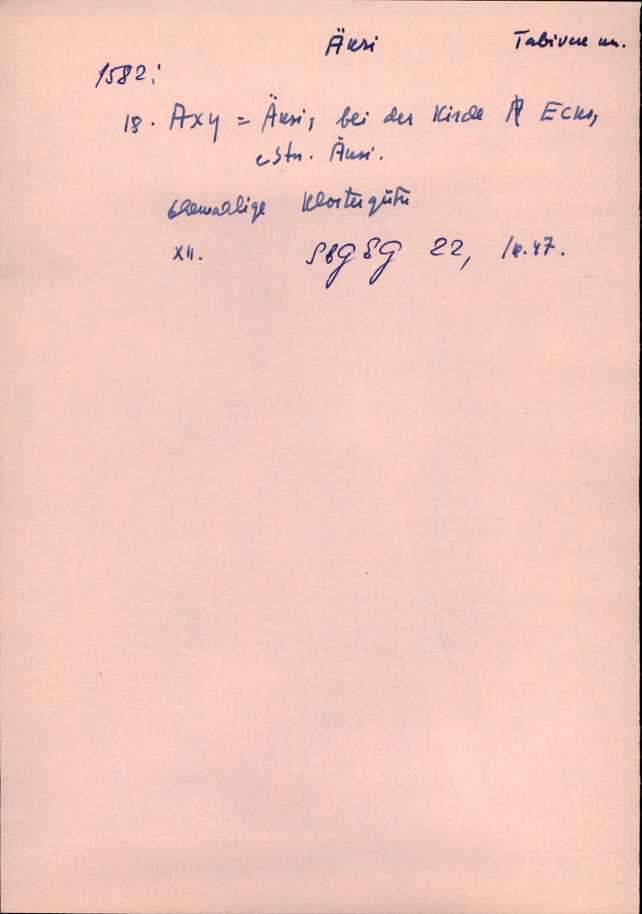 Äksi Tabivere kn.
1582:
18. Axy = Äksi, bei der Kirche Ecks,
estn. Äksi.
ehemalige Klostergüter
XII. SbGEG 22, lk. 47.